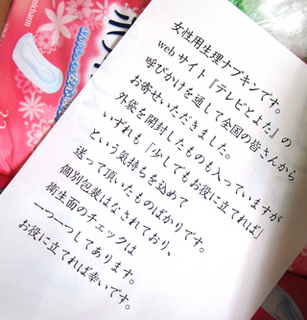 女性用生理ナプキンです。
webサイト『テレビとよた』の
呼びかけを通して全国の皆さんから
お寄せいただきました。
外袋を開封したものも入っていますが
いずれも「少しでもお役に立てれば」
という気持ちを込めて
送って頂いたものばかりです。
個別包装はなされており、
衛生面のチェックは
一つ一つしてあります。
お役に立てれば幸いです。